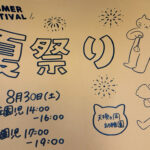 MER
TIVAL
夏祭り
8月30日(土)
園児14:00
-16:00
児17:00
-19:00
幼稚園